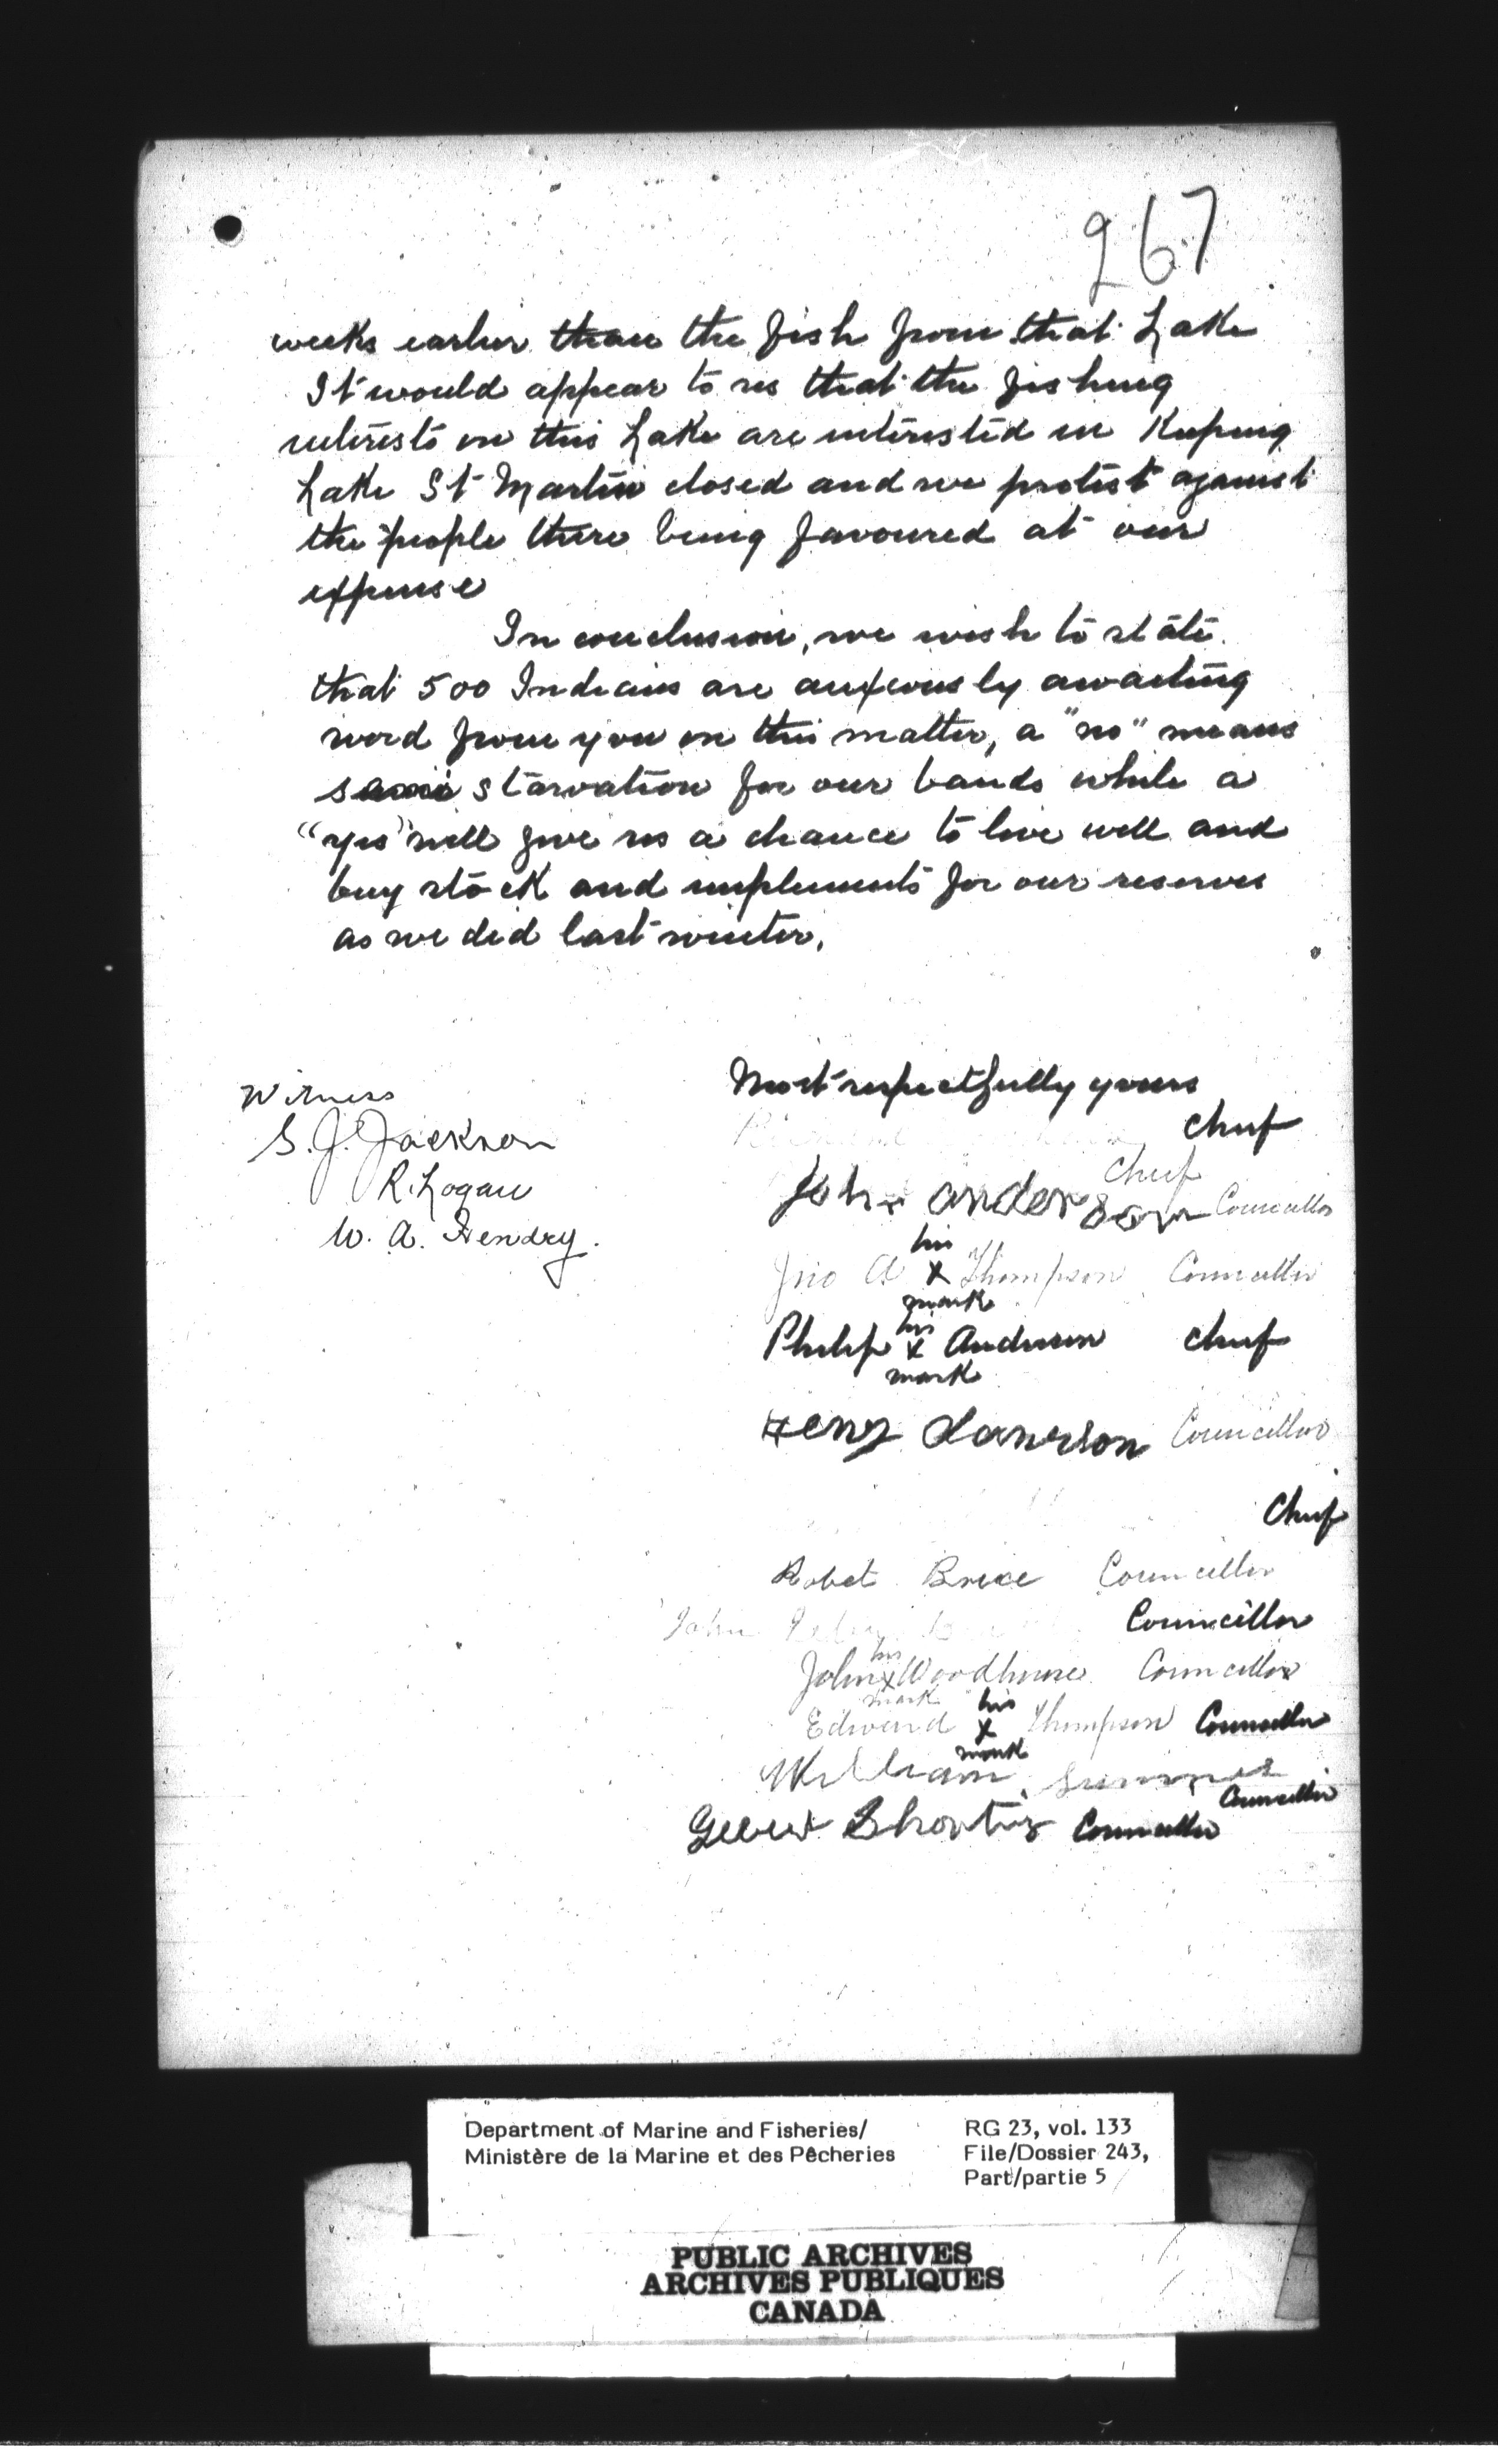 267
weeks earlier than the fish from that Lake
It would appear to us that the fishing
interests on this Lake are interested in Keeping
Lake St Martin closed and we protest against
the people there being favoured at our
expense
In conclusion, we wish to state
that 500 Indians are anxiously awaiting
word from you on this matter, a "no" means
semi starvation for our bands while a
"yes" will give us a chance to live well and
buy stock and implements for our reserves
as we did last winter.
Most respectfully yours
Witness
S. J. Jackson
R. Logan
W. A. Hendry.
Chief
Chief
John anderson Councillor
his
Jno A x Thompson Councillor
mark
his
Philip x Anderson Chief
mark
Councillor
Chief
Robet Bruce Councillor
John Councillor
his
John x Woodhouse Councillor
mark his
Edward x Thompson Councillor
mark
William Sumner
Councillor
Councillor
Department of Marine and Fisheries/
Ministère de la Marine et des Pêcheries
RG 23, vol. 133
File/Dossier 243,
Part/partie 5
PUBLIC ARCHIVES
ARCHIVES PUBLIQUES
CANADA